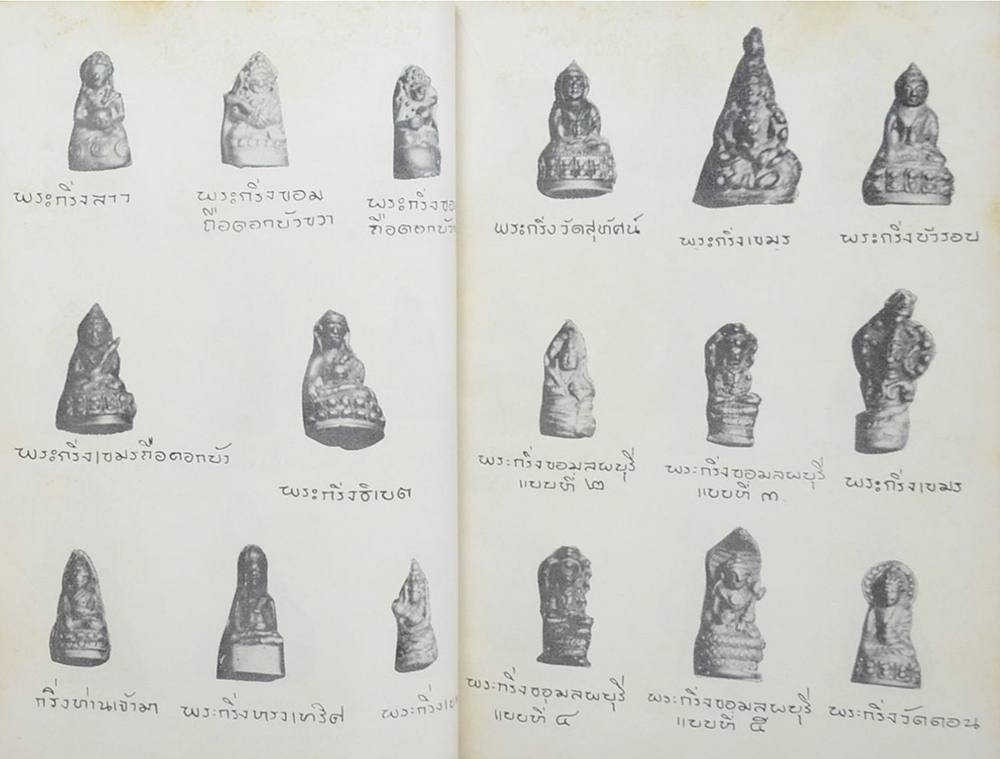 พระกริ่งลาว
พระกริ่งขอม
ถือดอกบัวขวา
พระกริ่งขอ
ถือดอกบัว
พระกริ่งเขมรถือดอกบัว
พระกริ่งธิเบต
กริ่งท่านเจ้ามา
พระกริ่งทรงเทริด
พระกริ่ง
พระกริ่งวัดสุทัศน์
พระกริ่งเขมร
พระกริ่งบัวรอบ
พระกริ่งขอมลพบุรี
แบบที่ ๒
พระกริ่งขอมลพบุรี
แบบที่ ๓
พระกริ่งเขมร
พระกริ่งขอมลพบุรี
แบบที่ ๔
พระกริ่งขอมลพบุรี
แบบที่ ๕
พระกริ่งวัดดอน